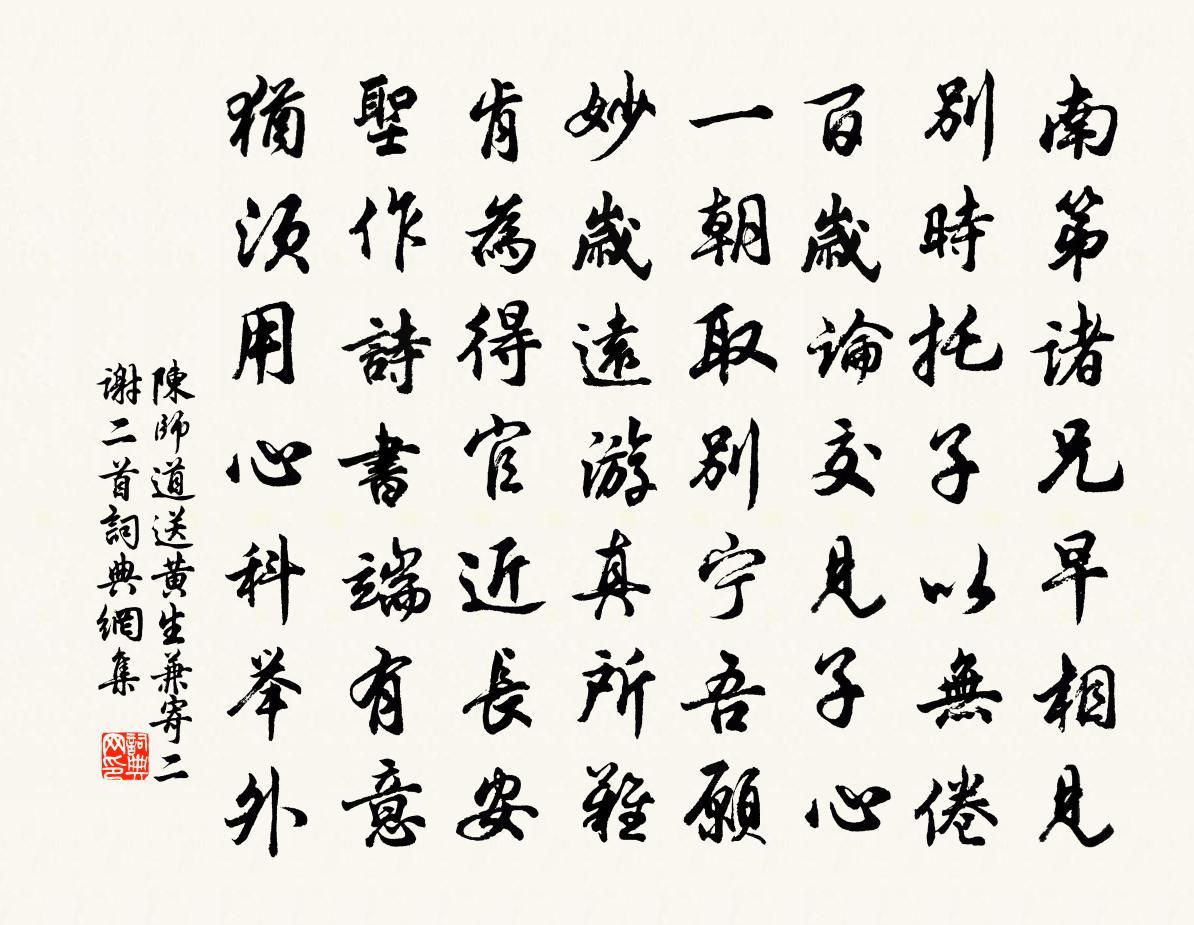 南第諸兄早相見
別時托子以無倦
百歲論交見子心
一朝取別宁吾願
妙歲遠游真所難
肯為得官近長安
聖作詩書端有意
猶須用心科举外
陳師道送黃生兼寄二
謝二首詞典網集
詞典网印